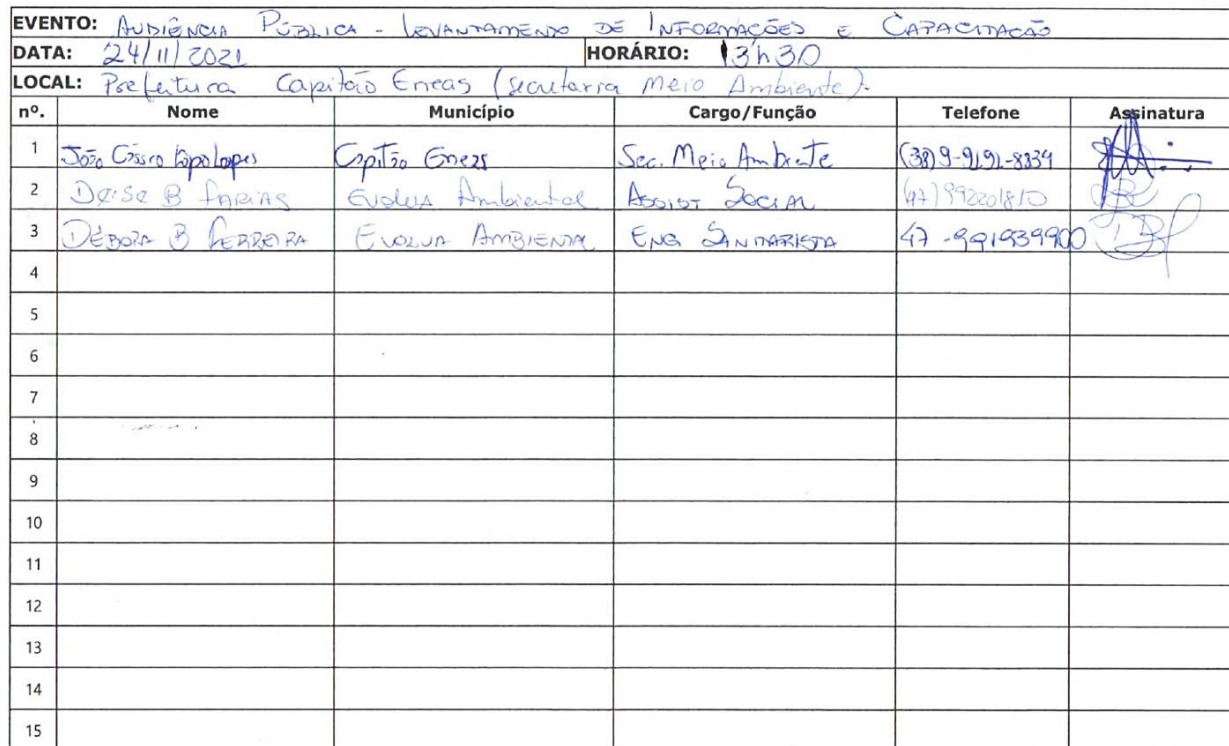 EVENTO: AUDIÊNCIA PÚBLICA - LEVANTAMENTO DE INFORMAÇÕES E CAPACITAÇÃO
DATA: 24/11/2021 HORÁRIO: 13h30
LOCAL: Prefeitura Capitão Eneas (secretaria Meio Ambiente).
nº. Nome Município Cargo/Função Telefone Assinatura
1 João Lopes Capitão Eneas Sec. Meio Ambiente (38) 9-9191-8339
2 Deise B FARIAS Evolua Ambiental Assist Social (47) 992201810
3 DÉBORA B FERREIRA EVOLUA AMBIENTAL ENG SANITARISTA 47-991939900
4
5
6
7
8
9
10
11
12
13
14
15